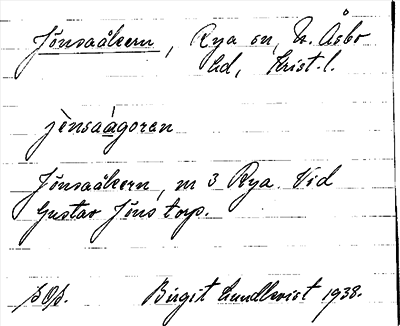 Jönsaåkern, Rya sn, N. Åsbo
hd, Krist. l.
jènsaágoran
Jönsaåkern, m 3 Rya. Vid
Gustav Jöns torp.
Birgit Lundkvist 1938.